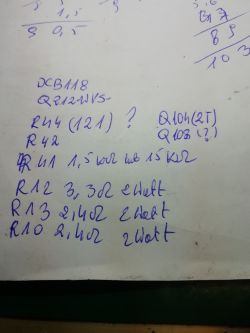 1,5
9 0,5
8 9
103
DCB118
R44 (121) ? Q104(2T)
R42 Q103 (?)
R41 1,5kΩ 15kΩ
R12 3,3Ω 2Watt
R13 2,4Ω 2Watt
R10 2,4Ω 2Watt